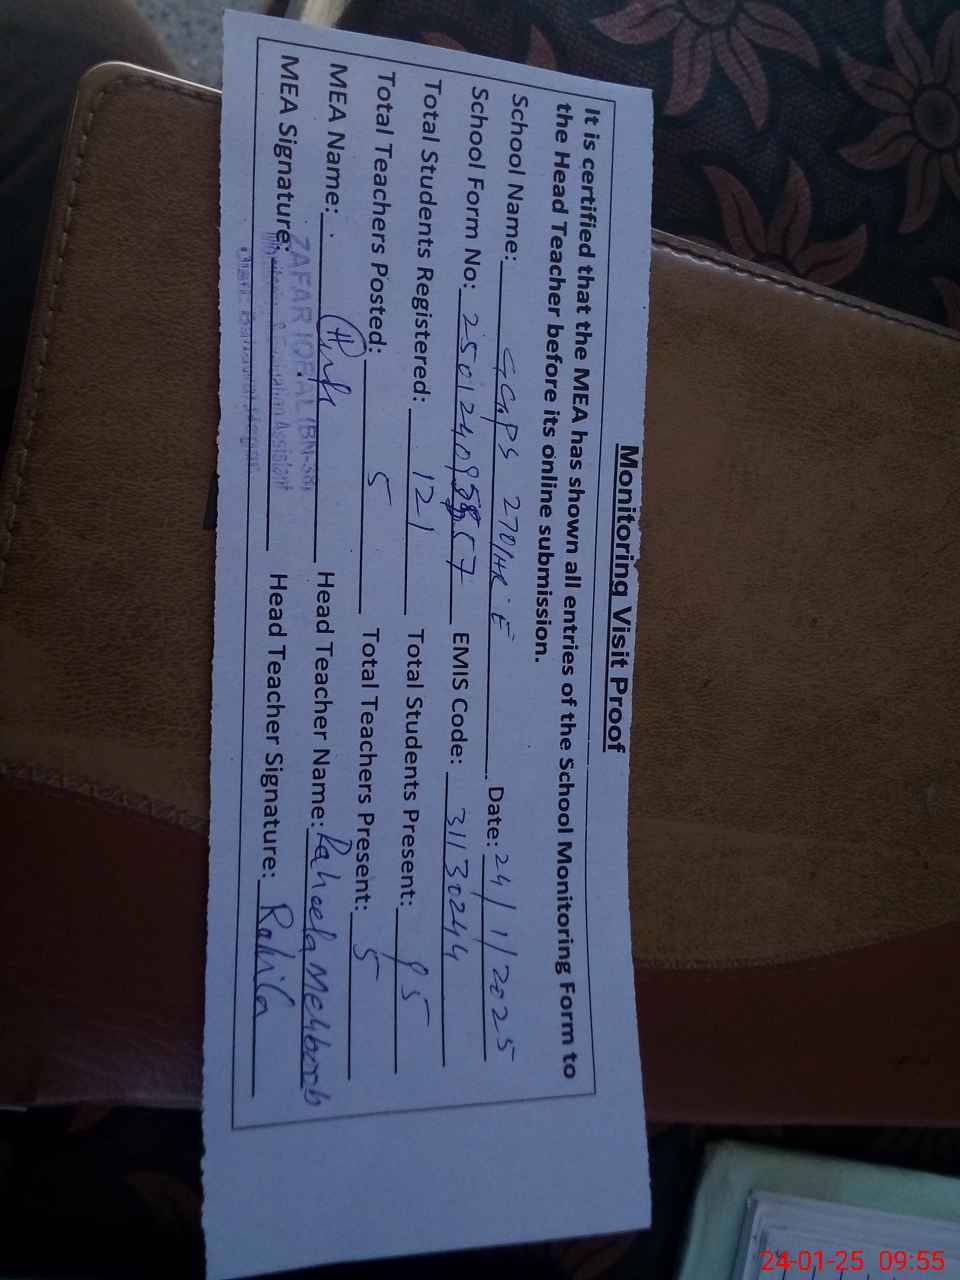 Monitoring Visit Proof
It is certified that the MEA has shown all entries of the School Monitoring Form to
the Head Teacher before its online submission.
School Name: GGPS 270/HR E Date: 24/1/2025
School Form No: 250124095 57 EMIS Code: 31130244
Total Students Registered: 121 Total Students Present: 95
Total Teachers Posted: 5 Total Teachers Present: 5
MEA Name: Head Teacher Name: Raheela Mehboob
ZAFAR IQBAL
MEA Signature: Head Teacher Signature: Rahila
Monitoring & Evaluation Assistant
24-01-25 09:55